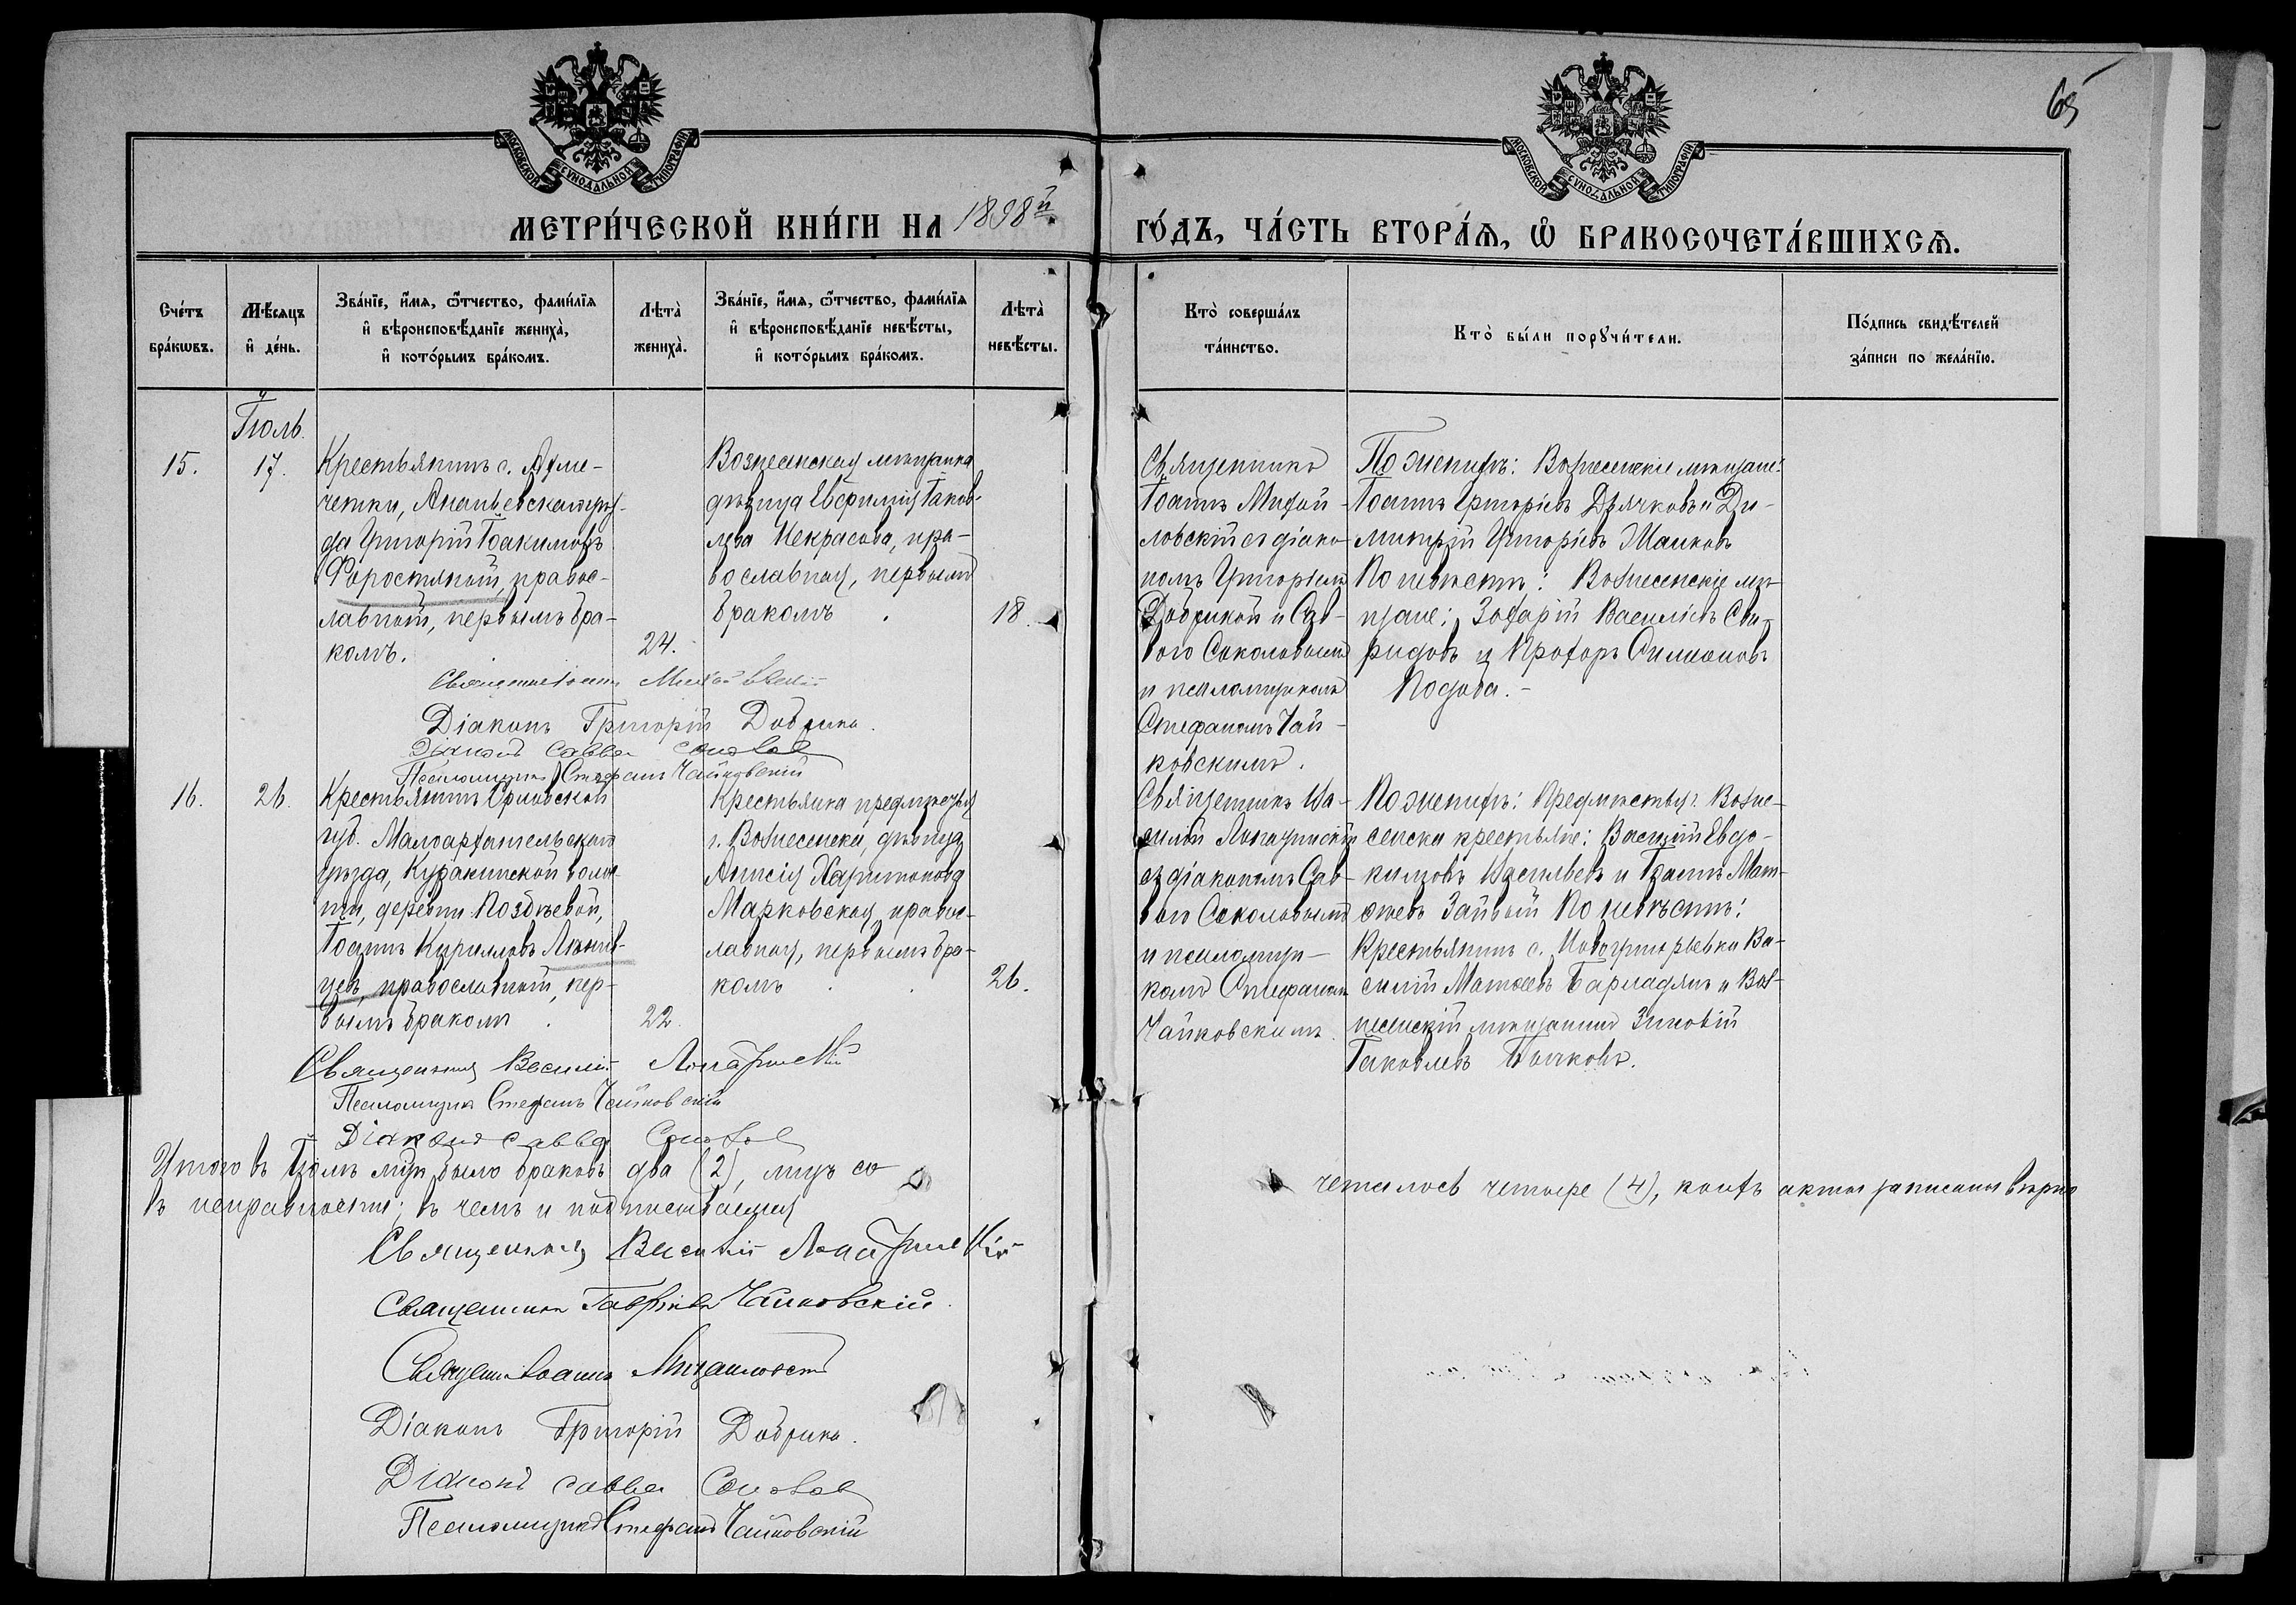 65
МОСКОВСКОЙ СУНОДАЛЬНОЙ ТИПОГРАФІИ
МОСКОВСКОЙ СУНОДАЛЬНОЙ ТИПОГРАФІИ
МЕТРИ́ЧЕСКОЙ КНИ́ГИ НА 1898й ГО́ДЪ, ЧА́СТЬ ВТОРА́Ѧ, Ѡ҆ БРАКОСОЧЕТА́ВШИХСѦ.
Сче́тъ бра́кѡвъ.
Мѣ́сѧцъ и҆ де́нь.
Зва́нїе, и҆́мѧ, ѻ҆́тчество, фами́лїѧ
и҆ вѣроисповѣ́данїе жениха̀,
и҆ кото́рымъ бра́комъ.
Лѣ́та̀ жениха̀.
Зва́нїе, и҆́мѧ, ѻ҆́тчество, фами́лїѧ
и҆ вѣроисповѣ́данїе невѣ́сты,
и҆ кото́рымъ бра́комъ.
Лѣ́та̀ невѣ́сты.
Кто̀ соверша́лъ та́инство.
Кто̀ бы́ли порꙋчи́тели.
По́дпись свидѣ́телей за́писи по жела́нїю.
Іюль
15.
17.
Крестьянинъ с. Ахме-
четки, Ананьевскаго уѣз-
да Григорій Іоакимовъ
Форостяный, правос-
лавный, первымъ бра-
комъ.
24.
Вознесенская мѣщанка
дѣвица Евфимія Іаков-
лева Некрасова, пра-
вославная, первымъ
бракомъ
18.
Священникъ
Іоаннъ Михай-
ловскій съ діако-
номъ Григоріемъ
Добрикой и Сав-
вою Соколовымъ
и псаломщикомъ
Стефаномъ Чай-
ковскимъ.
По женихѣ: Вознесенскіе мѣщане:
Іоаннъ Григоріевъ Дьячковъ и Ди-
митрій Григоріевъ Жанковъ
По невѣстѣ: Вознесенскіе мѣ-
щане: Захарій Василіевъ Сви-
ридовъ и Прохоръ Симеоновъ
Подова.-
Священникъ Іоаннъ Михайловскій
Діаконъ Григорій Добрика.
Діаконъ Савва Соколов
Псаломщикъ Стефанъ Чайковскій
16.
26.
Крестьянинъ Орловской
губ. Малоархангельскаго
уѣзда, Куракинской волос-
ти, деревни Поздѣевой,
Іоаннъ Кирилловъ Лѣнив-
цевъ, православный, пер-
вымъ бракомъ
22.
Крестьянка предмѣстья
г. Вознесенска, дѣвица
Анисія Харитонова
Марковская, правос-
лавная, первымъ бра-
комъ
26.
Священникъ Ва-
силій Лопатинскій
съ діакономъ Сав-
вою Соколовымъ
и псаломщи-
комъ Стефаномъ
Чайковскимъ.
По женихѣ: Предмѣстья г. Возне-
сенска крестьяне: Василій Евдо-
кимовъ Васильевъ и Іоаннъ Мат-
ѳеевъ Заивый По невѣстѣ:
Крестьянинъ с. Новогригорьевки Ва-
силій Матѳеевъ Барладянъ и Воз-
несенскій мѣщанинъ Зиновій
Іаковлевъ Бычковъ.
Священникъ Василій Лопатинскій
Псаломщикъ Стефанъ Чайковскій
Діаконъ Савва Соколов
Итого въ Іюлѣ мѣс. было браковъ два (2), лицъ со- четалось четыре (4), коихъ акты записаны вѣрно
въ исправности; въ чемъ и подписываемся
Священникъ Василій Лопатинскій
Священникъ Гавріилъ Чайковскій.
Священ. Іоаннъ Михайловскій
Діаконъ Григорій Добрика.
Діаконъ Савва Соколов
Псаломщикъ Стефанъ Чайковскій